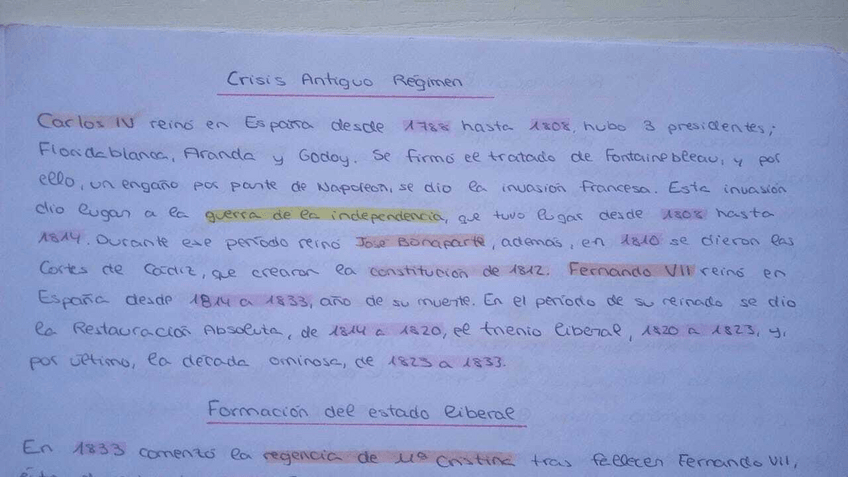 Crisis Antiguo Régimen
Carlos IV reinó en España desde 1788 hasta 1808, hubo 3 presidentes;
Floridablanca, Aranda y Godoy. Se firmó el tratado de Fontainebleau, y por
ello, un engaño por parte de Napoleón, se dio la invasión francesa. Esta invasión
dio lugar a la guerra de la independencia, que tuvo lugar desde 1808 hasta
1814. Durante ese período reinó José Bonaparte, además, en 1810 se dieron las
Cortes de Cádiz, que crearon la constitución de 1812. Fernando VII reinó en
España desde 1814 a 1833, año de su muerte. En el período de su reinado se dio
la Restauración Absoluta, de 1814 a 1820, el trienio liberal, 1820 a 1823, y,
por último, la década ominosa, de 1823 a 1833.
Formación del estado liberal
En 1833 comenzó la regencia de Mª Cristina tras fallecer Fernando VII,